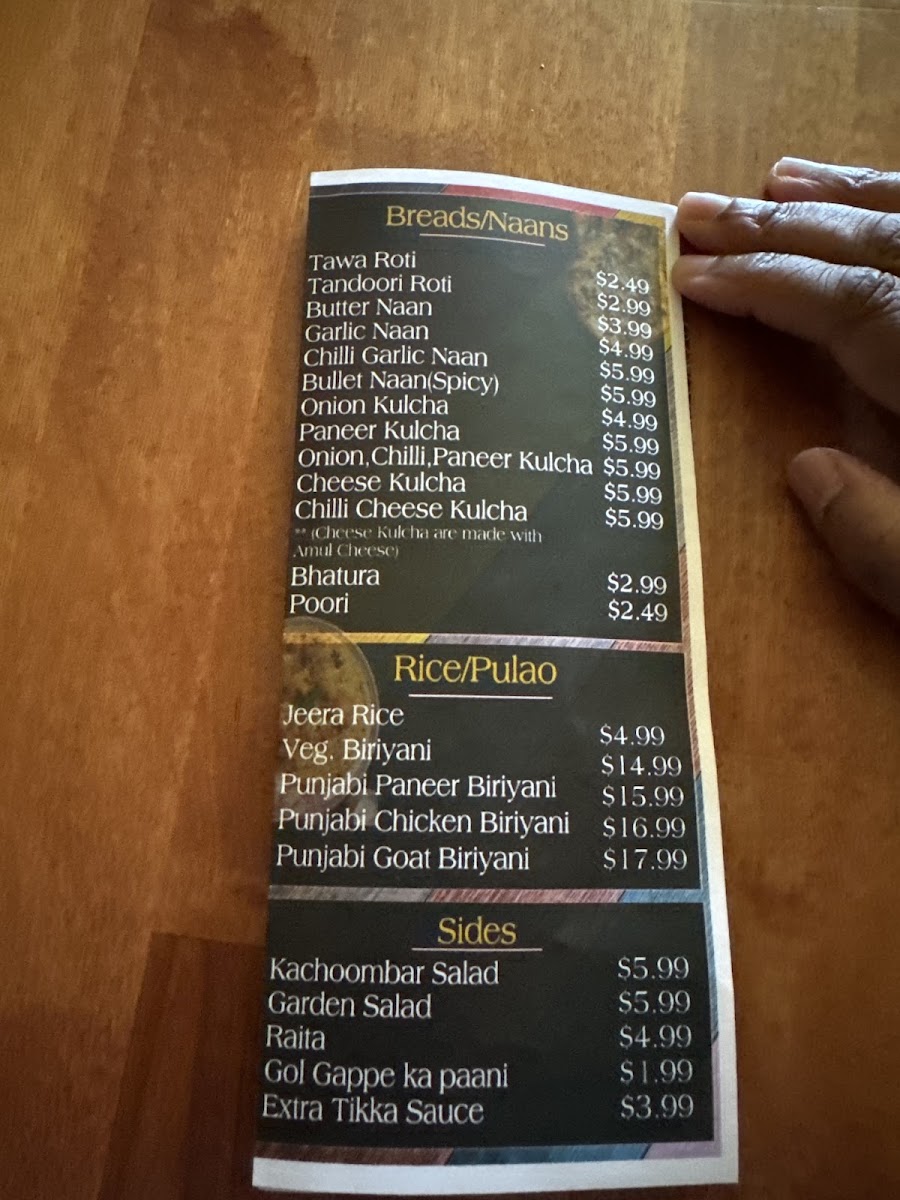 Breads/Naans
Tawa Roti $2.49
Tandoori Roti $2.99
Butter Naan $3.99
Garlic Naan $4.99
Chilli Garlic Naan $5.99
Bullet Naan(Spicy) $5.99
Onion Kulcha $4.99
Paneer Kulcha $5.99
Onion,Chilli,Paneer Kulcha $5.99
Cheese Kulcha $5.99
Chilli Cheese Kulcha $5.99
** (Cheese Kulcha are made with
Amul Cheese)
Bhatura $2.99
Poori $2.49
Rice/Pulao
Jeera Rice $4.99
Veg. Biriyani $14.99
Punjabi Paneer Biriyani $15.99
Punjabi Chicken Biriyani $16.99
Punjabi Goat Biriyani $17.99
Sides
Kachoombar Salad $5.99
Garden Salad $5.99
Raita $4.99
Gol Gappe ka paani $1.99
Extra Tikka Sauce $3.99